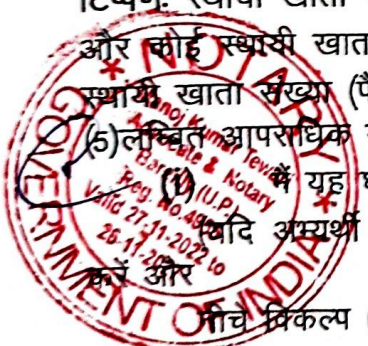 और कोई स्थायी खात
स्थायी खाता संख्या
(5)लम्बित आपराधिक
(i) मैं यह
यदि अभ्यर्थी
करें और
नीचे विकल्प
* NOTARY *
GOVERNMENT OF INDIA
Manoj Kumar Tewari
Advocate & Notary
(U.P.)
Reg. No.
Valid 27-11-2022 to